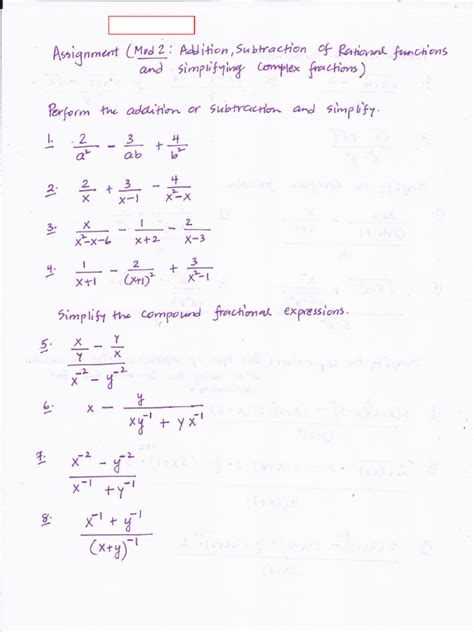 Assignment (Mod 2: Addition, Subtraction of Rational functions
and simplifying complex fractions)
Perform the addition or subtraction and simplify.
1. 2/a² − 3/ab + 4/b²
2. 2/x + 3/(x−1) − 4/(x²−x)
3. x/(x²−x−6) − 1/(x+2) − 2/(x−3)
4. 1/(x+1) − 2/(x+1)² + 3/(x²−1)
Simplify the compound fractional expressions.
5. (x/y − y/x)/(x⁻² − y⁻²)
6. x − y/(xy⁻¹ + yx⁻¹)
7. (x⁻² − y⁻²)/(x⁻¹ + y⁻¹)
8. (x⁻¹ + y⁻¹)/(x+y)⁻¹